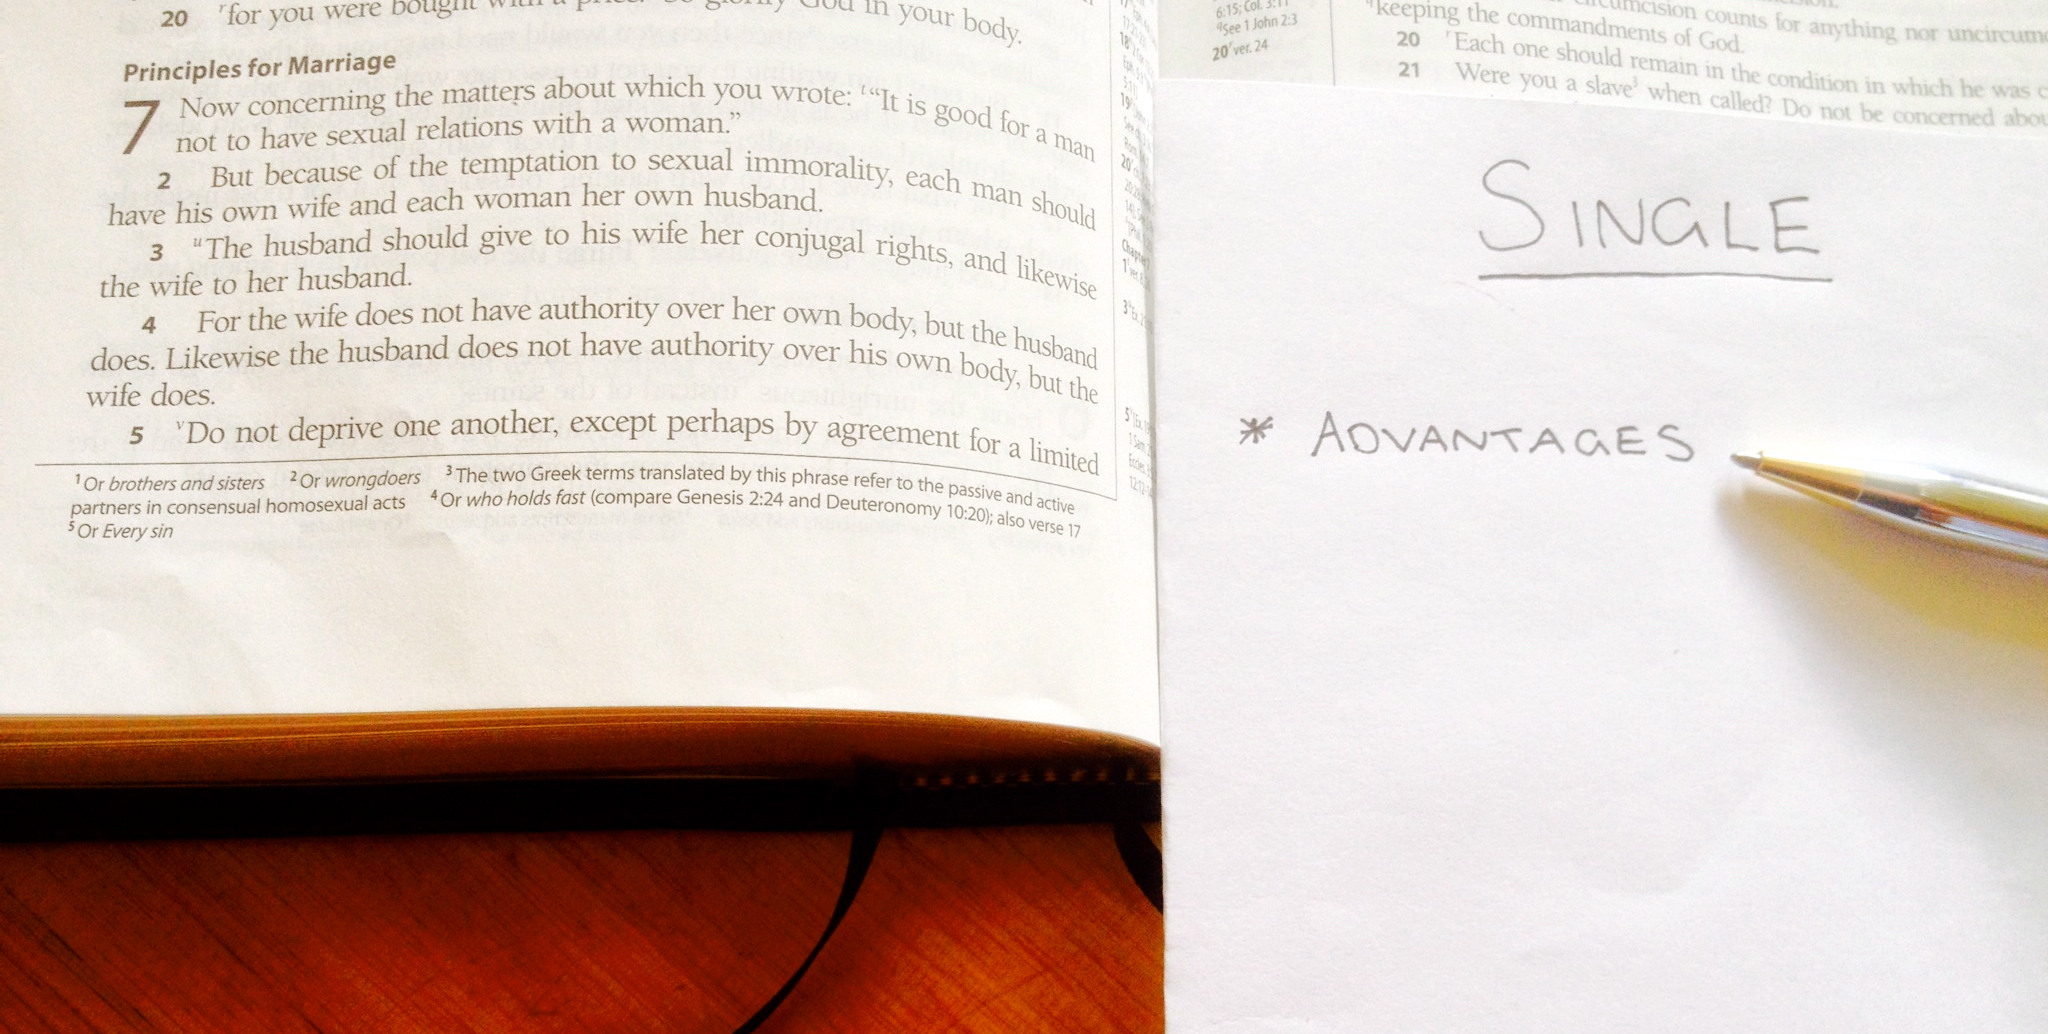 20 ʳfor you were bought with a price. So glorify God in your body.
Principles for Marriage
7 Now concerning the matters about which you wrote: ᵗ“It is good for a man
not to have sexual relations with a woman.”
2 But because of the temptation to sexual immorality, each man should
have his own wife and each woman her own husband.
3 ᵘThe husband should give to his wife her conjugal rights, and likewise
the wife to her husband.
4 For the wife does not have authority over her own body, but the husband
does. Likewise the husband does not have authority over his own body, but the
wife does.
5 ᵛDo not deprive one another, except perhaps by agreement for a limited
¹Or brothers and sisters ²Or wrongdoers ³The two Greek terms translated by this phrase refer to the passive and active
partners in consensual homosexual acts ⁴Or who holds fast (compare Genesis 2:24 and Deuteronomy 10:20); also verse 17
⁵Or Every sin
6:15; Col. 3:11
See 1 John 2:3
20 ʳver. 24
counts for anything nor
keeping the commandments of God.
20 ʳEach one should remain in the condition in which he was
21 Were you a slave³ when called? Do not be concerned
SINGLE
* ADVANTAGES